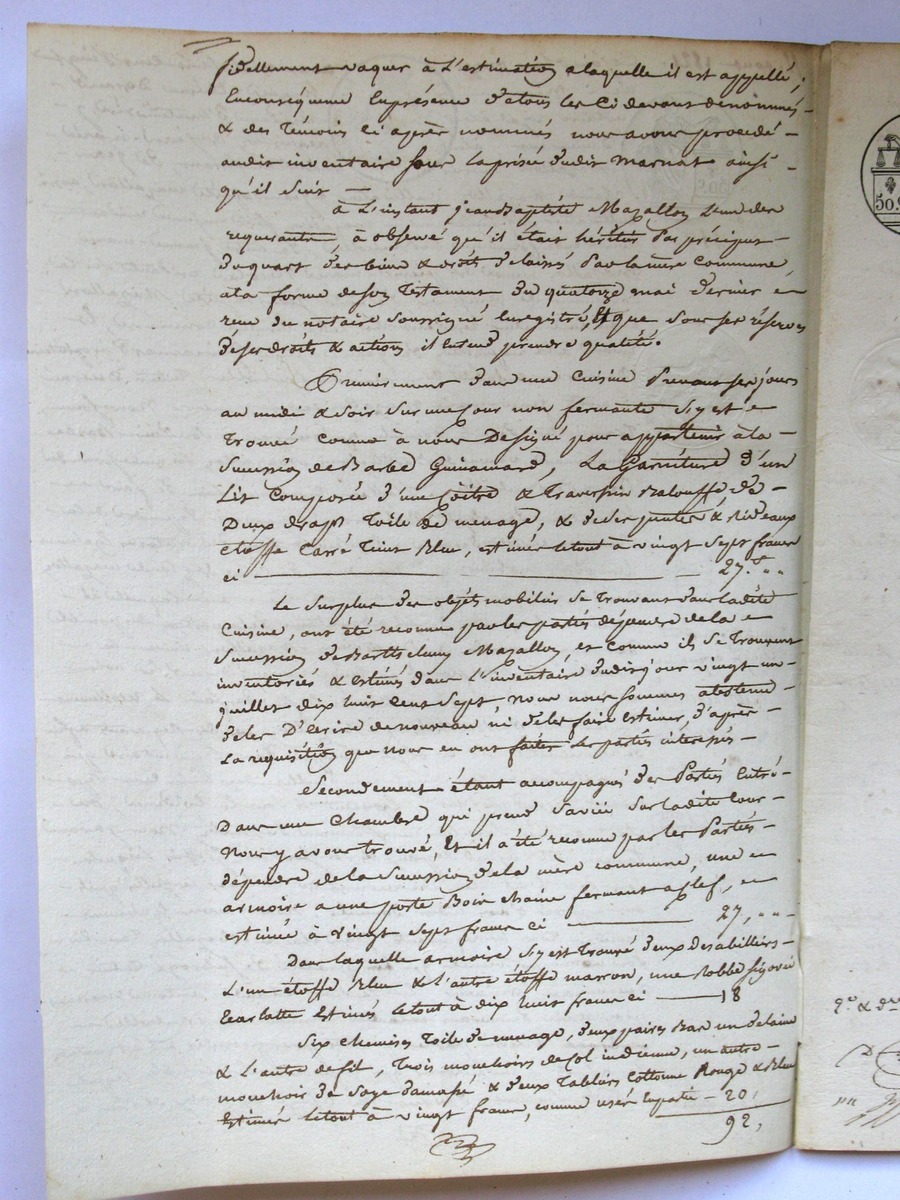 fidellement vaquer à L'estimation a laquelle il est appellé,
En conséquence En présence de tous les Ci devant dénommés -
& des Témoins Ci après nommés nous avons procédé -
audit inventaire sous la prisée dudit Marnat ainsi -
qu'il suit —
à L'instant Jean Baptiste Mazallon L'un des
requerants, à observé qu'il était héritier Par préciput -
du quart des biens & droits délaissés Par la mère Commune
à la forme de son Testament du quatorze mai dernier
reçu du notaire soussigné Enregistré, Et que sous ses réserves
de ses droits & actions il Entend prendre qualité.
Premierement dans une Cuisine Prenant ses jours
au midi & soir sur une Cour non fermante s'y est
Trouvé Comme à nous Désigné pour appartenir à la -
Succession de Barbe Guinamard, La Garniture d'un
Lit Composée d'une Coëtre & Traversin Balouffe de -
Deux draps Toile de menage, & de ses pentes & Rideaux
Etoffe Carré Teint Bleu, estimés le tout à vingt sept francs
ci — 27. " "
Le Surplus des objets mobiliers se Trouvant dans ladite
Cuisine, ont été reconnu par les parties dépendre de la
Succession de Barthelemy Mazallon, et Comme ils se Trouvent
inventoriés & Estimés dans L'inventaire dudit jour vingt un -
juillet dix huit Cent Sept, nous nous sommes abstenu -
de les D'Ecrire de nouveau ni de les faire Estimer, d'après -
La requisition que nous en ont faites les parties interessés -
Secondement étant accompagnés des Parties Entré -
Dans une Chambre qui prend sa vüe sur ladite Cour -
Nous y avons trouvé, Et il a été reconnu par les Parties -
dépendre de la Succession de la mère commune, une
armoire a une porte Bois chaîne fermant a Clef,
estimée à vingt sept francs ci — 27, " " -
Dans laquelle armoire s'y est Trouvé deux desabilliers -
L'un étoffe Bleu & L'autre étoffe marron, une Robbe
Ecarlatte Estimés le tout à dix huit francs ci — 18
Six Chemises Toile de menage, deux paires Bas un de laine
& L'autre de fil, Trois mouchoirs de Col indienne, un autre -
mouchoir de Soye damassé & deux Tabliers Cottonne Rouge & Bleu
Estimé le tout à vingt francs, comme usés En partie - 20,
92,
50.C
2° & d